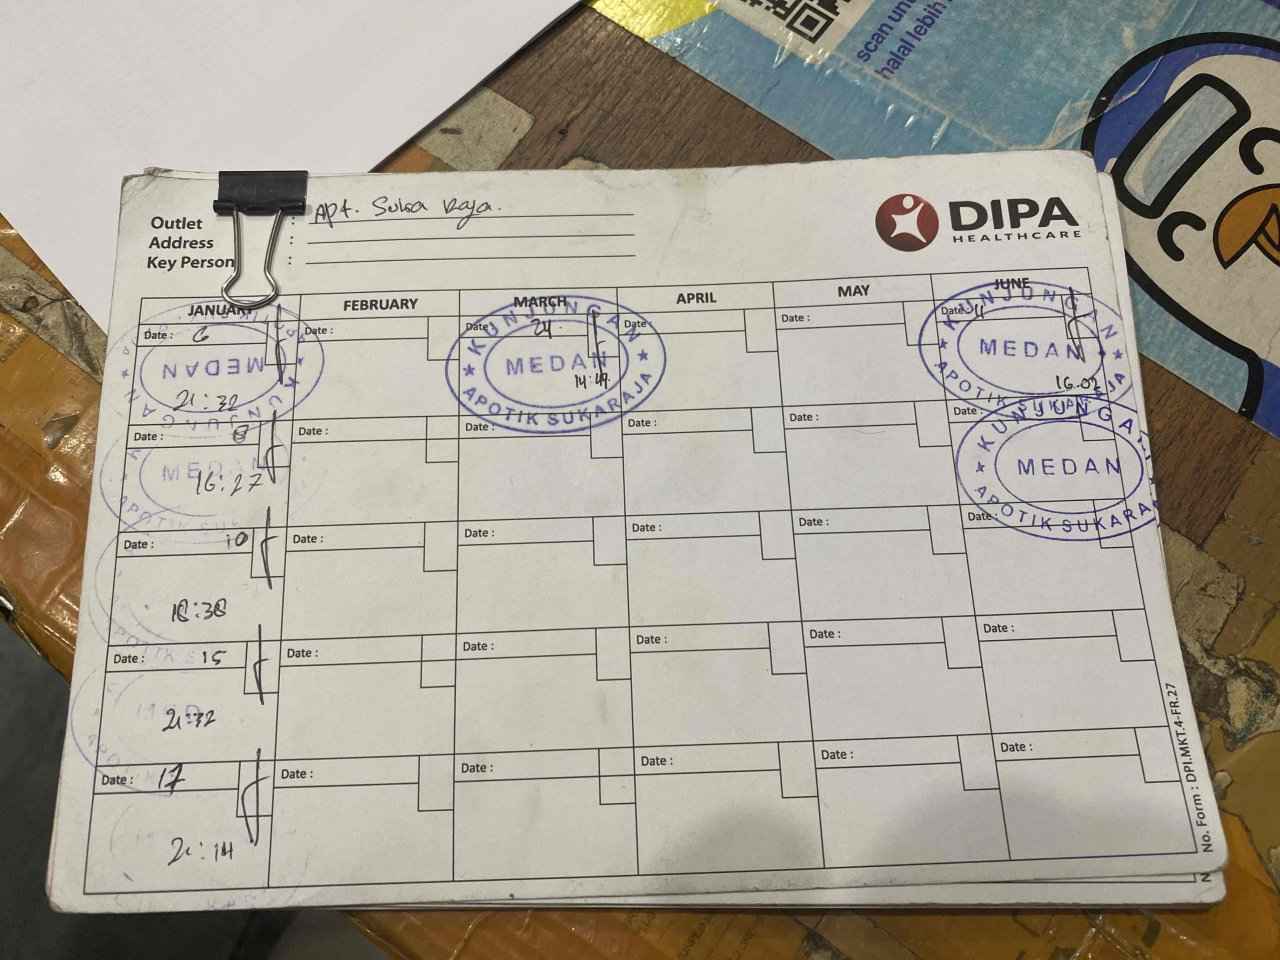 scan un
halal lebih
DIPA
HEALTHCARE
Outlet : Apt. Suka Raja.
Address :
Key Person :
JANUARY FEBRUARY MARCH APRIL MAY JUNE
Date : 6 Date : Date : 24 Date : Date : Date : 11
21:32 14:49 16.02
KUNJUNGAN MEDAN APOTIK SUKARAJA
KUNJUNGAN MEDAN APOTIK SUKARAJA
KUNJUNGAN MEDAN APOTIK SUKARAJA
Date : 8 Date : Date : Date : Date : Date :
16:27
MEDAN
APOTIK SUK
KUNJUNGAN MEDAN APOTIK SUKARA
Date : 10 Date : Date : Date : Date : Date :
18:38
Date : 15 Date : Date : Date : Date : Date :
21:32
Date : 17 Date : Date : Date : Date : Date :
21:14
No. Form : DPI.MKT.4-FR.27